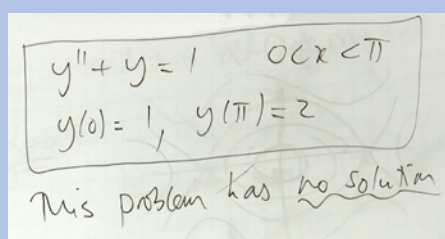 y'' + y = 1   0<x<π
y(0) = 1, y(π) = 2
This problem has no solution